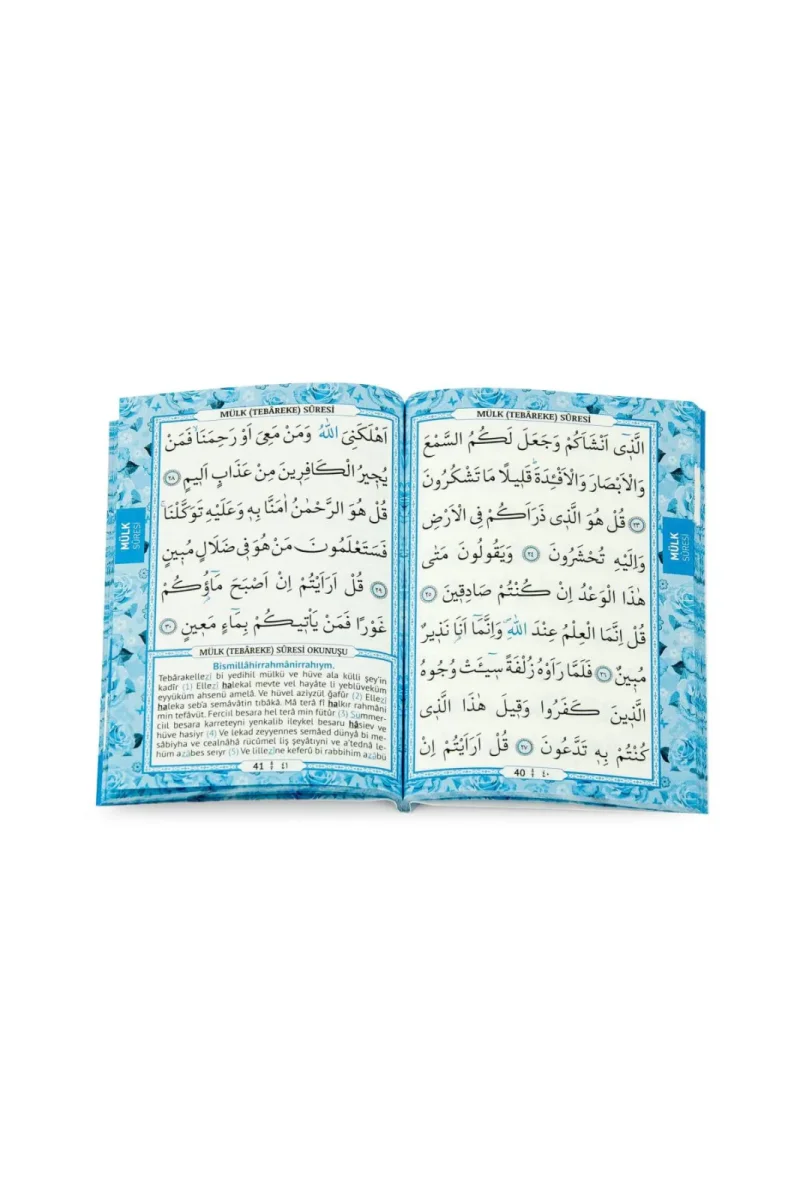 MÜLK (TEBÂREKE) SÛRESİ
اَلَّذٖٓى اَنْشَاَكُمْ وَجَعَلَ لَكُمُ السَّمْعَ
وَالْاَبْصَارَ وَالْاَفْئِدَةَؕ قَلٖيلًا مَا تَشْكُرُونَ
﴿٢٣﴾ قُلْ هُوَ الَّذٖى ذَرَاَكُمْ فِى الْاَرْضِ
وَاِلَيْهِ تُحْشَرُونَ ﴿٢٤﴾ وَيَقُولُونَ مَتٰى
هٰذَا الْوَعْدُ اِنْ كُنْتُمْ صَادِقٖينَ ﴿٢٥﴾
قُلْ اِنَّمَا الْعِلْمُ عِنْدَ اللّٰهِ وَاِنَّمَٓا اَنَا۬ نَذٖيرٌ
مُبٖينٌ ﴿٢٦﴾ فَلَمَّا رَاَوْهُ زُلْفَةً سٖٓيـَٔتْ وُجُوهُ
الَّذٖينَ كَفَرُوا وَقٖيلَ هٰذَا الَّذٖى
كُنْتُمْ بِهٖ تَدَّعُونَ ﴿٢٧﴾ قُلْ اَرَاَيْتُمْ اِنْ
40 ٤٠
MÜLK
SÛRESİ
MÜLK (TEBÂREKE) SÛRESİ
اَهْلَكَنِىَ اللّٰهُ وَمَنْ مَعِىَ اَوْ رَحِمَنَاۙ فَمَنْ
يُجٖيرُ الْكَافِرٖينَ مِنْ عَذَابٍ اَلٖيمٍ ﴿٢٨﴾
قُلْ هُوَ الرَّحْمٰنُ اٰمَنَّا بِهٖ وَعَلَيْهِ تَوَكَّلْنَاۚ
فَسَتَعْلَمُونَ مَنْ هُوَ فٖى ضَلَالٍ مُبٖينٍ
﴿٢٩﴾ قُلْ اَرَاَيْتُمْ اِنْ اَصْبَحَ مَٓاؤُ۬كُمْ
غَوْرًا فَمَنْ يَاْتٖيكُمْ بِمَٓاءٍ مَعٖينٍ ﴿٣٠﴾
MÜLK (TEBÂREKE) SÛRESİ OKUNUŞU
Bismillâhirrahmânirrahıym.
Tebârakellezî bi yedihil mülkü ve hüve ala külli şey'in
kadîr (1) Ellezî halekal mevte vel hayâte li yeblüveküm
eyyüküm ahsenü amelâ. Ve hüvel azîyzül ğafûr (2) Ellezî
haleka seb'a semâvâtin tıbâkâ. Mâ terâ fî halkır rahmâni
min tefâvüt. Ferciıl besara hel terâ min fütûr (3) Summer-
ciıl besara karreteyni yenkalib ileykel besaru hâsiev ve
hüve hasiyr (4) Ve lekad zeyyennes semâed dünyâ bi me-
sâbiyha ve cealnâhâ rücûmel liş şeyâtıyni ve a'tednâ le-
hüm azâbes seıyr (5) Ve lillezîne keferû bi rabbihim azâbü
41 ٤١
MÜLK
SÛRESİ